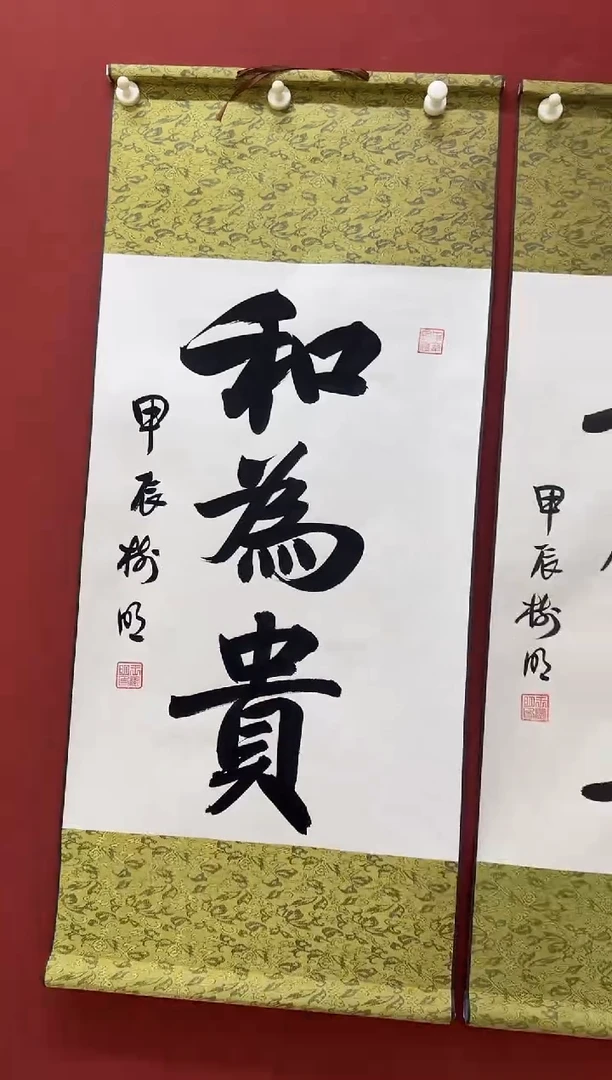 和為貴
甲辰樹明
甲辰樹明